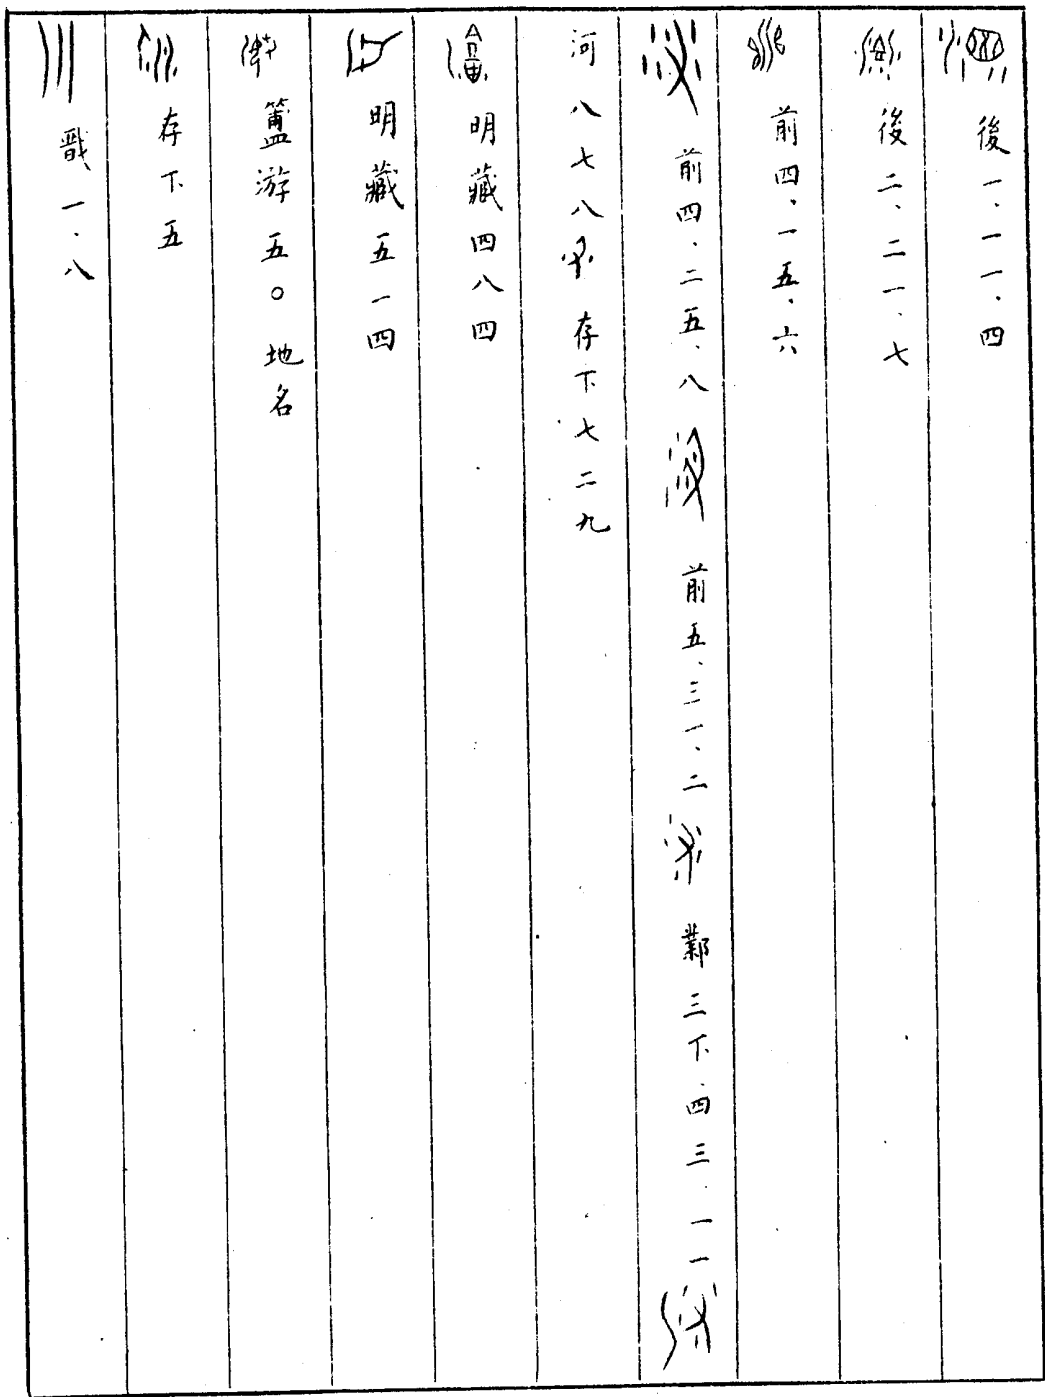 後一、一一、四
後二、二一、七
前四、一五、六
前四、二五、八 前五、三一、二 鄴三下、四三、一一
河八七八 存下七二九
明藏四八四
明藏五一四
簠游五〇 地名
存下五
戩一、八